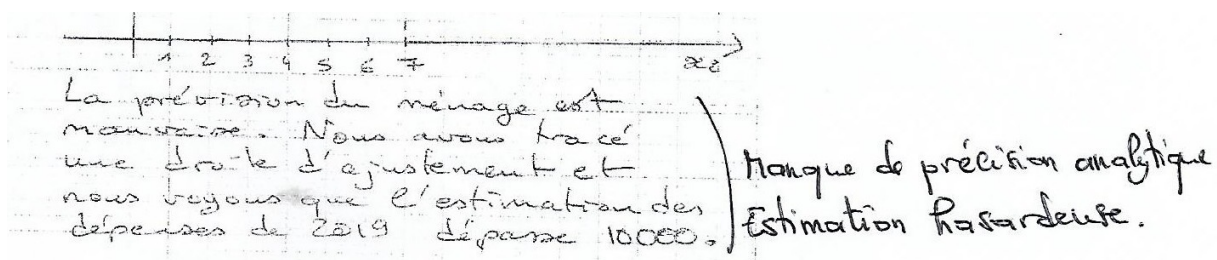 1 2 3 4 5 6 7 xi
La prévision du ménage est
mauvaise. Nous avons tracé
une droite d'ajustement et
nous voyons que l'estimation des
dépenses de 2019 dépasse 10000.
Manque de précision analytique
Estimation hasardeuse.